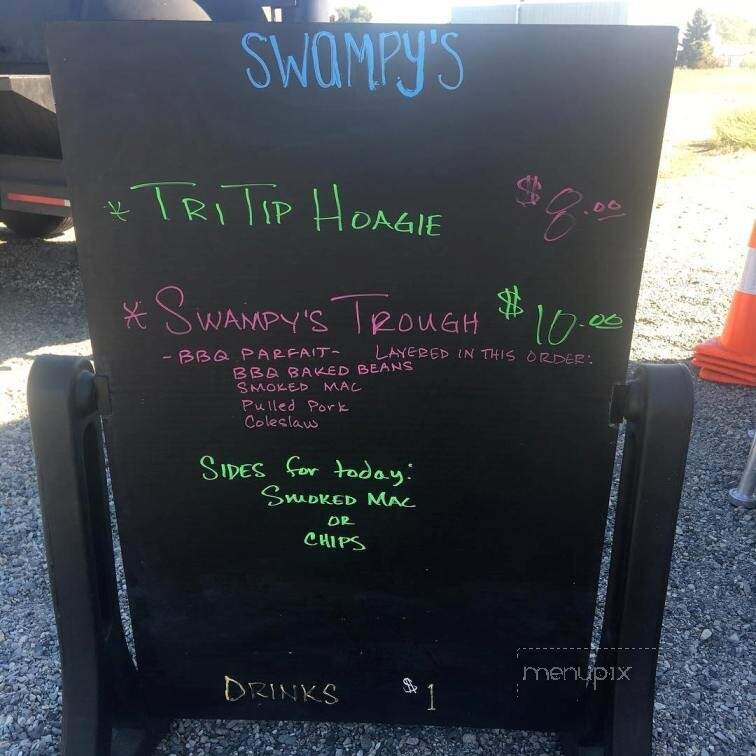 SWAMPY'S
* TRI TIP HOAGIE $8.00
* SWAMPY'S TROUGH $10.00
- BBQ PARFAIT - LAYERED IN THIS ORDER:
BBQ BAKED BEANS
SMOKED MAC
Pulled Pork
Coleslaw
SIDES for today:
SMOKED MAC
OR
CHIPS
menupix
DRINKS $1